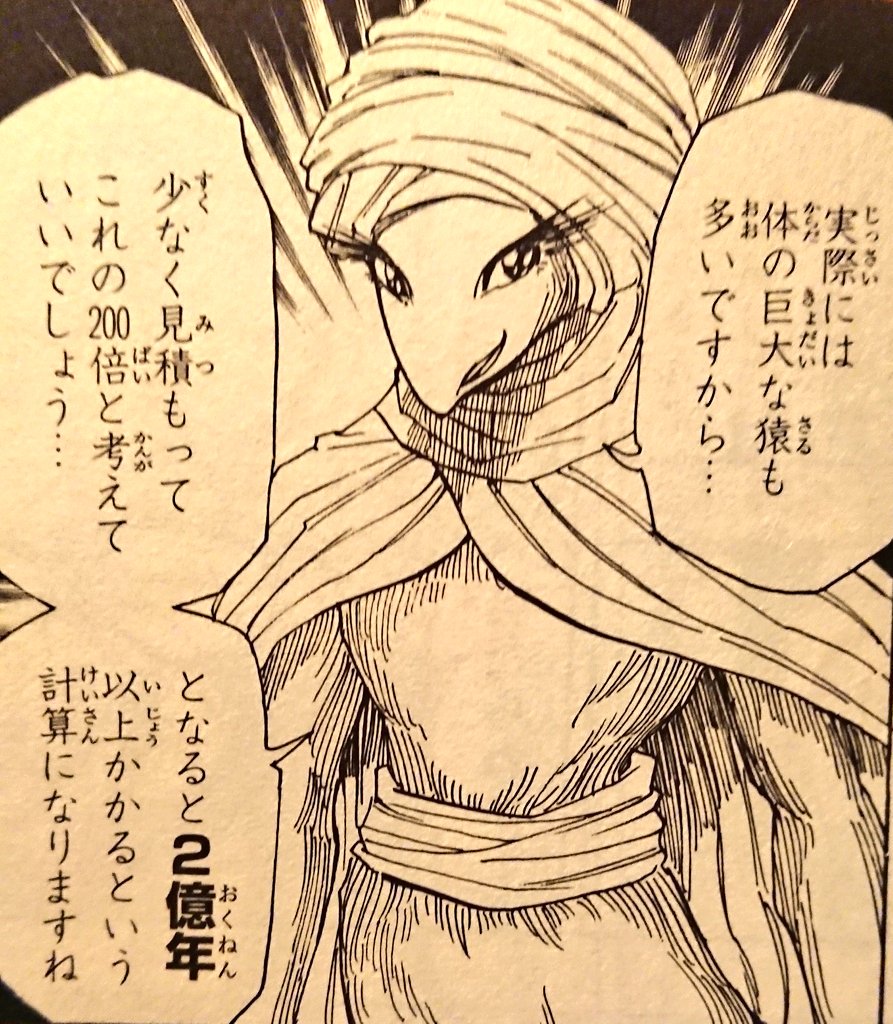 実際には
体の巨大な猿も
多いですから…
少なく見積もって
これの200倍と考えて
いいでしょう…
となると2億年
以上かかるという
計算になりますね